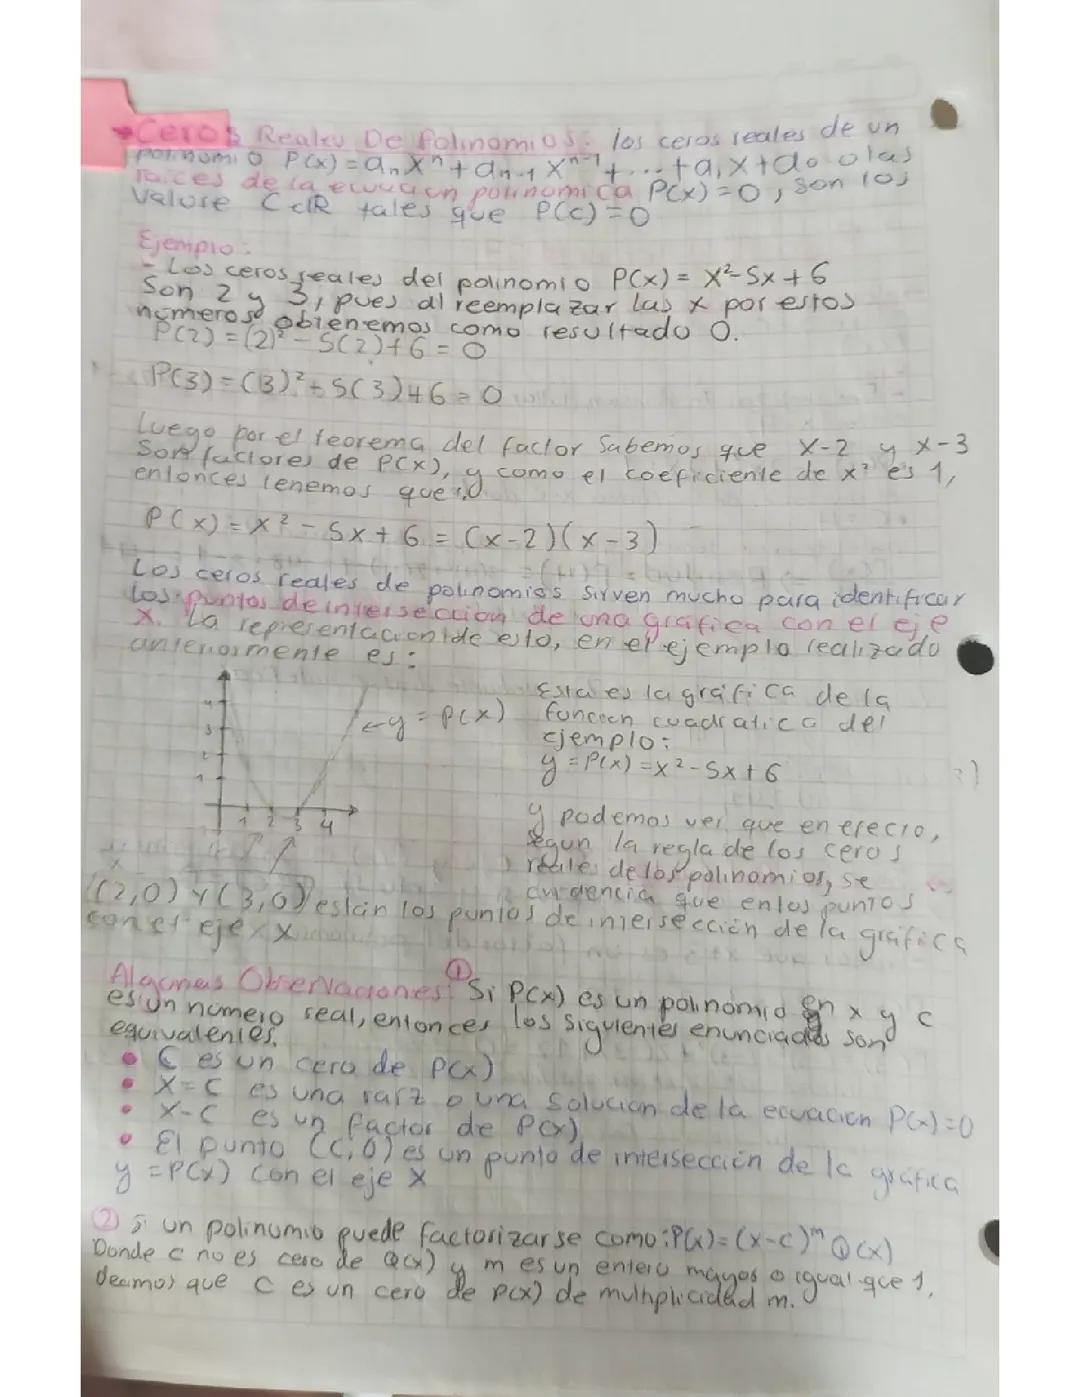 Ceros Reales De Polinomios: los ceros reales de un
polinomio P(x) = aₙxⁿ + aₙ₋₁ xⁿ⁻¹ + ... + a₁x + a₀ o las
raices de la ecuacion polinomica P(x) = 0, son los
valore C ∈ ℝ tales que P(c) = 0
Ejemplo:
- Los ceros reales del polinomio P(x) = x² - 5x + 6
Son 2 y 3, pues al reemplazar las x por estos
numeros obtenemos como resultado 0.
P(2) = (2)² - 5(2) + 6 = 0
P(3) = (3)² + 5(3) + 6 = 0
Luego por el teorema del factor Sabemos que x-2 y x-3
Son factores de P(x), y como el coeficiente de x² es 1,
entonces tenemos que
P(x) = x² - 5x + 6 = (x-2)(x-3)
Los ceros reales de polinomios sirven mucho para identificar
los puntos de interseccion de una grafica con el eje
x. La representacion de esto, en el ejemplo realizado
anteriormente es:
4
3
2
1
1 2 3 4
← y = P(x)
Esta es la gráfica de la
funcion cuadratica del
ejemplo:
y = P(x) = x² - 5x + 6
y podemos ver que en efecto,
segun la regla de los ceros
reales de los polinomios, se
evidencia que en los puntos
(2,0) y (3,0) están los puntos de intersección de la gráfica
con el eje x
Algunas Observaciones: ① Si P(x) es un polinomio en x y c
es un numero real, entonces los siguientes enunciados son
equivalentes.
• C es un cero de P(x)
• X=C es una raíz o una solucion de la ecuacion P(x)=0
• X-C es un factor de P(x)
• El punto (C,0) es un punto de intersección de la gráfica
y = P(x) con el eje x
② si un polinomio puede factorizarse como: P(x) = (x-c)ᵐ Q(x)
Donde c no es cero de Q(x) y m es un entero mayor o igual que 1,
decimos que C es un cero de P(x) de multiplicidad m.